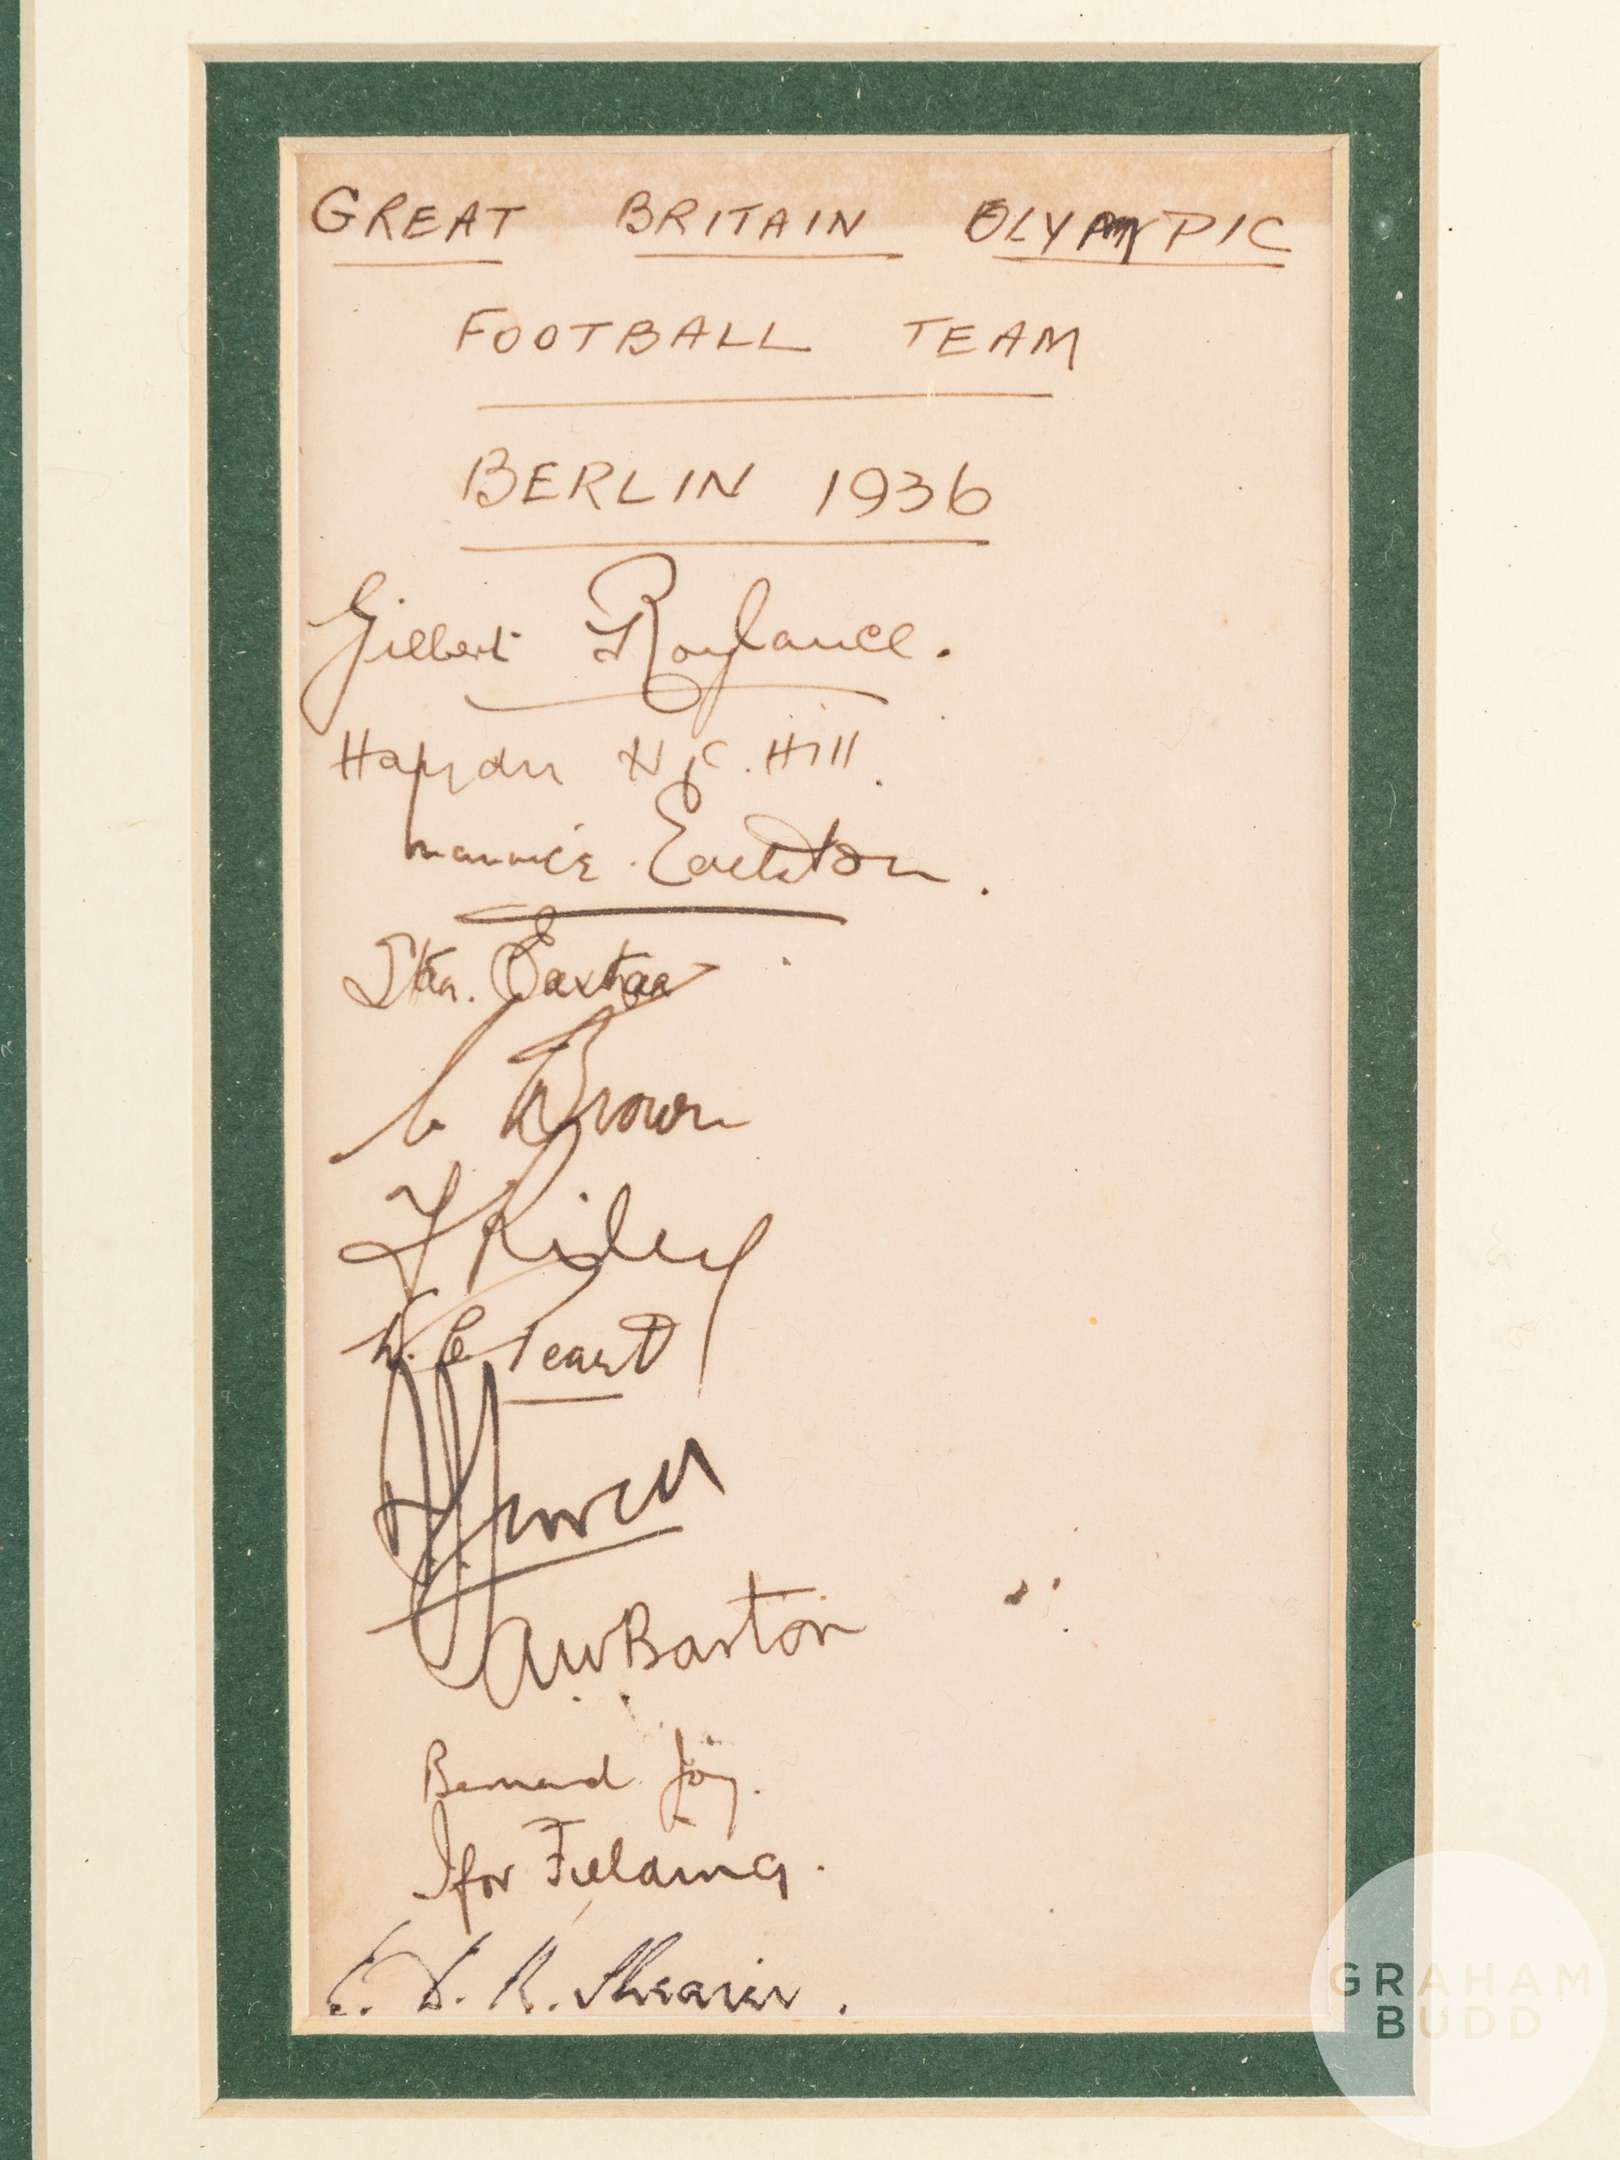 GREAT BRITAIN OLYMPIC
FOOTBALL TEAM
BERLIN 1936
Gilbert Roylance.
Haydn H.C. Hill.
Maurice Edelston.
Stan. Eastham
C Brown
F Riley
W. E. Teart
AWBarton
Bernard Joy.
Ifor Fielding.
E. D. R. Shearer.
GRAHAM
BUDD